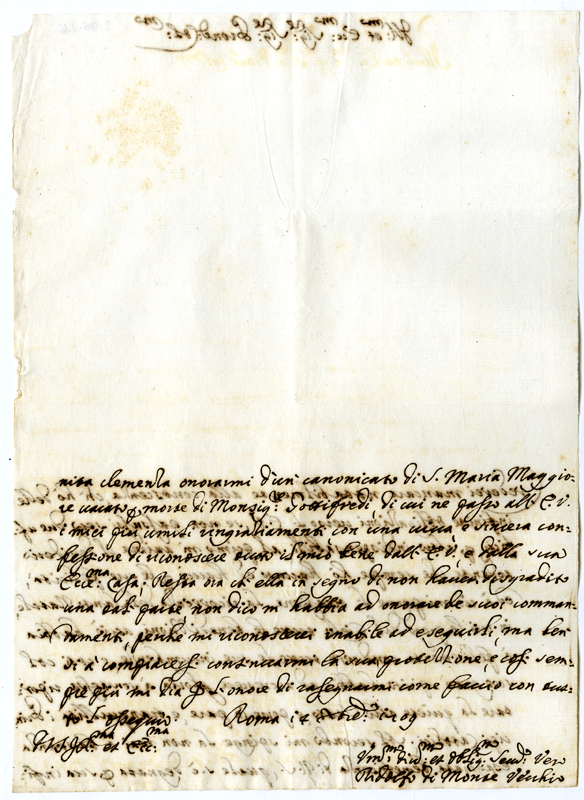 nita clemenza onorarmi d'un canonicato di S. Maria Maggio-
re vacato p morte di Monsig.r Gottifredi, di cui ne passo all' E.V.
i miei più umili ringraziamenti con una viva, e sincera con-
fessione di riconoscere tutto il mio bene dall' E.V., e dalla sua
Ecc.ma Casa; Resta ora ch' ella in segno di non haver disgradito
una tal parte, non dico mi habbia ad onorare de suoi coman-
damenti, perche mi riconoscerei inabile ad eseguirli, ma ben
si a compiacersi continuarmi la sua protezione, e così sem-
pre più mi dia l'onore di rasegnarmi come faccio con tut-
to l'ossequio. Roma 1709
Ill.ma et Ecc.ma
Um.mo Div.mo et Oblig.mo Serv. Vero
Ridolfo di Monte Vecchio